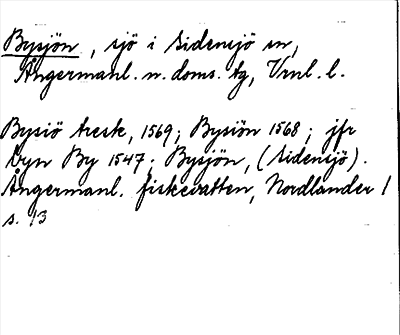 Bysjön, sjö i Sidensjö sn,
Ångermanl. n. doms. tg, Vrnl. l.
Bysiö tresk, 1569; Bysiön 1568; jfr
Dyn By 1547; Bysjön, (Sidensjö).
Ångermanl. fiskevatten, Nordlander 1
s. 13